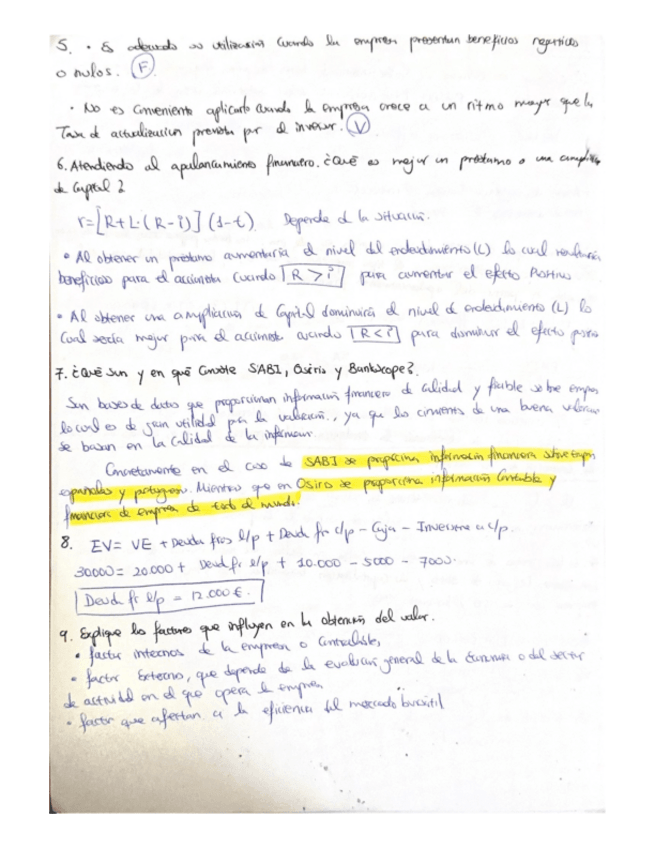 5. • Es adecuado su utilización cuando la empresa presentan beneficios negativos
o nulos. (F)
• No es conveniente aplicarlo cuando la empresa crece a un ritmo mayor que la
Tasa de actualización prevista por el inversor. (V)
6. Atendiendo al apalancamiento financiero. ¿Qué es mejor un préstamo o una ampliación
de Capital?
r=[R+L·(R-i)](1-t) Depende de la situación.
• Al obtener un préstamo aumentaría el nivel del endeudamiento (L) lo cual
beneficioso para el accionista cuando R>i para aumentar el efecto Positivo
• Al obtener una ampliación de Capital disminuirá el nivel de endeudamiento (L) lo
cual sería mejor para el accionista cuando R<i para disminuir el efecto
7. ¿Qué son y en qué Consiste SABI, Osiris y Bankscope?.
Son bases de datos que proporcionan información financiera de calidad y fiable sobre
lo cual es de gran utilidad para la valoración, ya que los cimientos de una buena
se basan en la calidad de la información.
Concretamente en el caso de SABI se proporciona información financiera sobre
españolas y portuguesa. Mientras que en Osiris se proporciona información Contable y
financiera de empresa de todo el mundo.
8. EV= VE + Deuda fras l/p + Deud fr c/p - Caja - Inversione a c/p.
30.000 = 20.000 + Deud fr l/p + 10.000 - 5000 - 7000.
Deud fr l/p = 12.000 €.
9. Explique los factores que influyen en la obtención del valor.
• factor internos de la empresa o Controlables,
• factor Externo, que depende de la evolución general de la Economía o del sector
de actividad en el que opera la empresa
• factor que afectan a la eficiencia del mercado bursátil